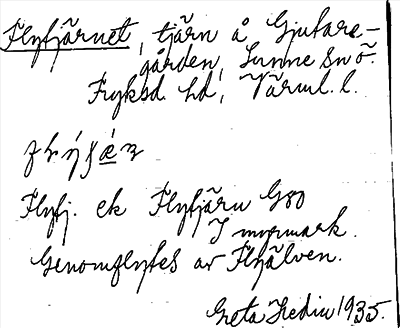 Flyfjärnet, tjärn å Gjutare-
gården, Sunne sn ö.
Fryksd. hd, Värml. l.
Flyfj. ek Flyfjärn G80
I myrmark.
Genomflytes av Flyälven.
Greta Hedin 1935.